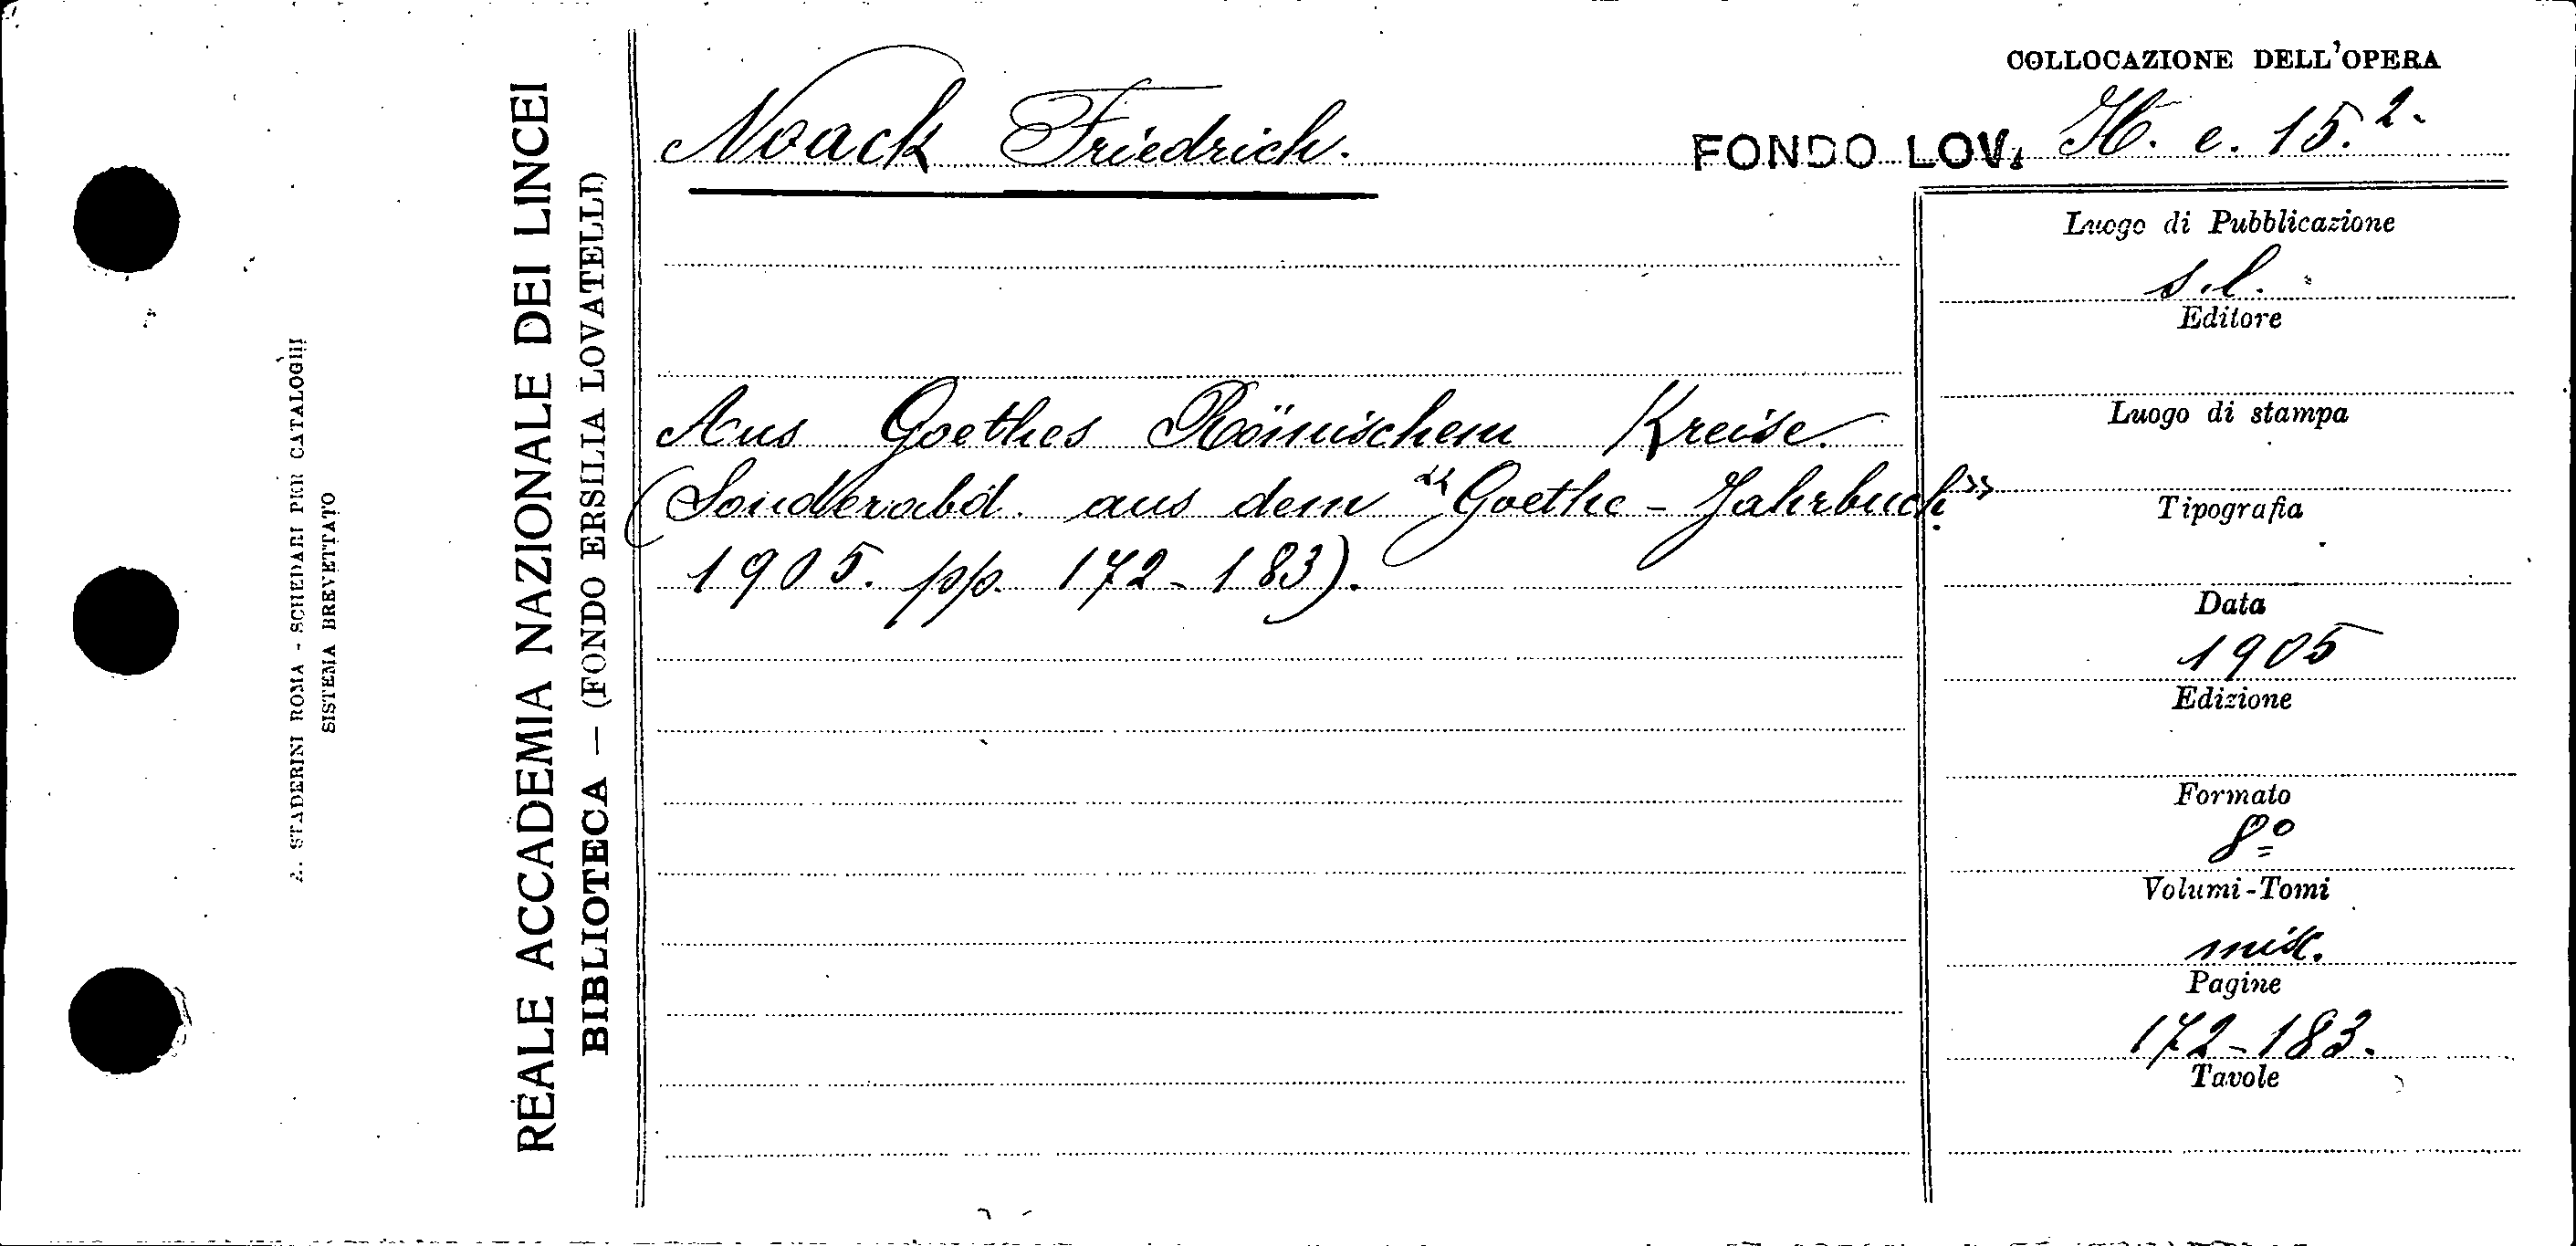 A. STADERINI ROMA - SCHEDARI PER CATALOGHI
SISTEMA BREVETTATO
REALE ACCADEMIA NAZIONALE DEI LINCEI
BIBLIOTECA — (FONDO ERSILIA LOVATELLI)
COLLOCAZIONE DELL'OPERA
Noack Friedrich.
FONDO LOV. H. e. 15.2.
Aus Goethes Römischem Kreise.
(Sonderabd. aus dem "Goethe-Jahrbuch"
1905. pp. 172-183).
Luogo di Pubblicazione
s.l.
Editore
Luogo di stampa
Tipografia
Data
1905
Edizione
Formato
8º
Volumi-Tomi
misc.
Pagine
172-183.
Tavole